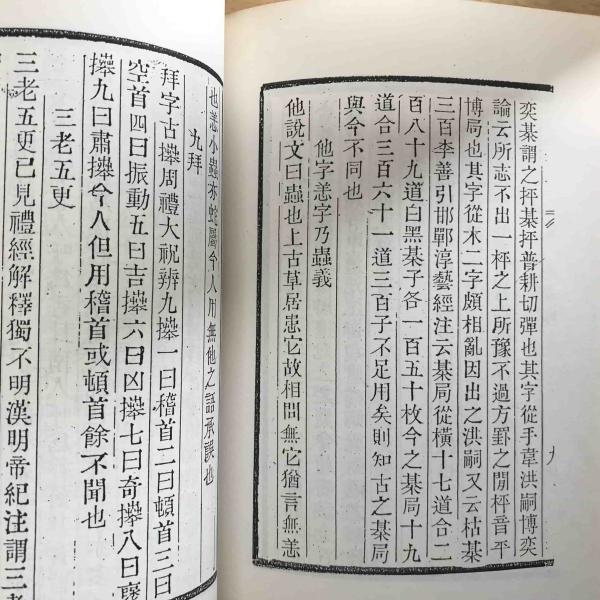 奕棊謂之抨棊抨普耕切彈也其字從手韋洪嗣博奕
論云所志不出一枰之上所豫不過方罫之間枰音平
博局也其字從木二字頗相亂因出之洪嗣又云枯棊
三百李善引邯鄲淳藝經注云棊局從橫十七道合二
百八十九道白黑棊子各一百五十枚今之棊局十九
道合三百六十一道三百子不足用矣則知古之棊局
與今不同也
他字恙字乃蟲義
他說文曰蟲也上古草居患它故相問無它猶言無恙
也恙小蟲亦蛇屬今人用無他之語承誤也
九拜
拜字古𢷎周禮大祝辨九𢷎一曰稽首二曰頓首三曰
空首四曰振動五曰吉𢷎六曰凶𢷎七曰奇𢷎八曰襃
𢷎九曰肅𢷎今人但用稽首或頓首餘不聞也
三老五更
三老五更已見禮經解釋獨不明漢明帝紀注謂三老